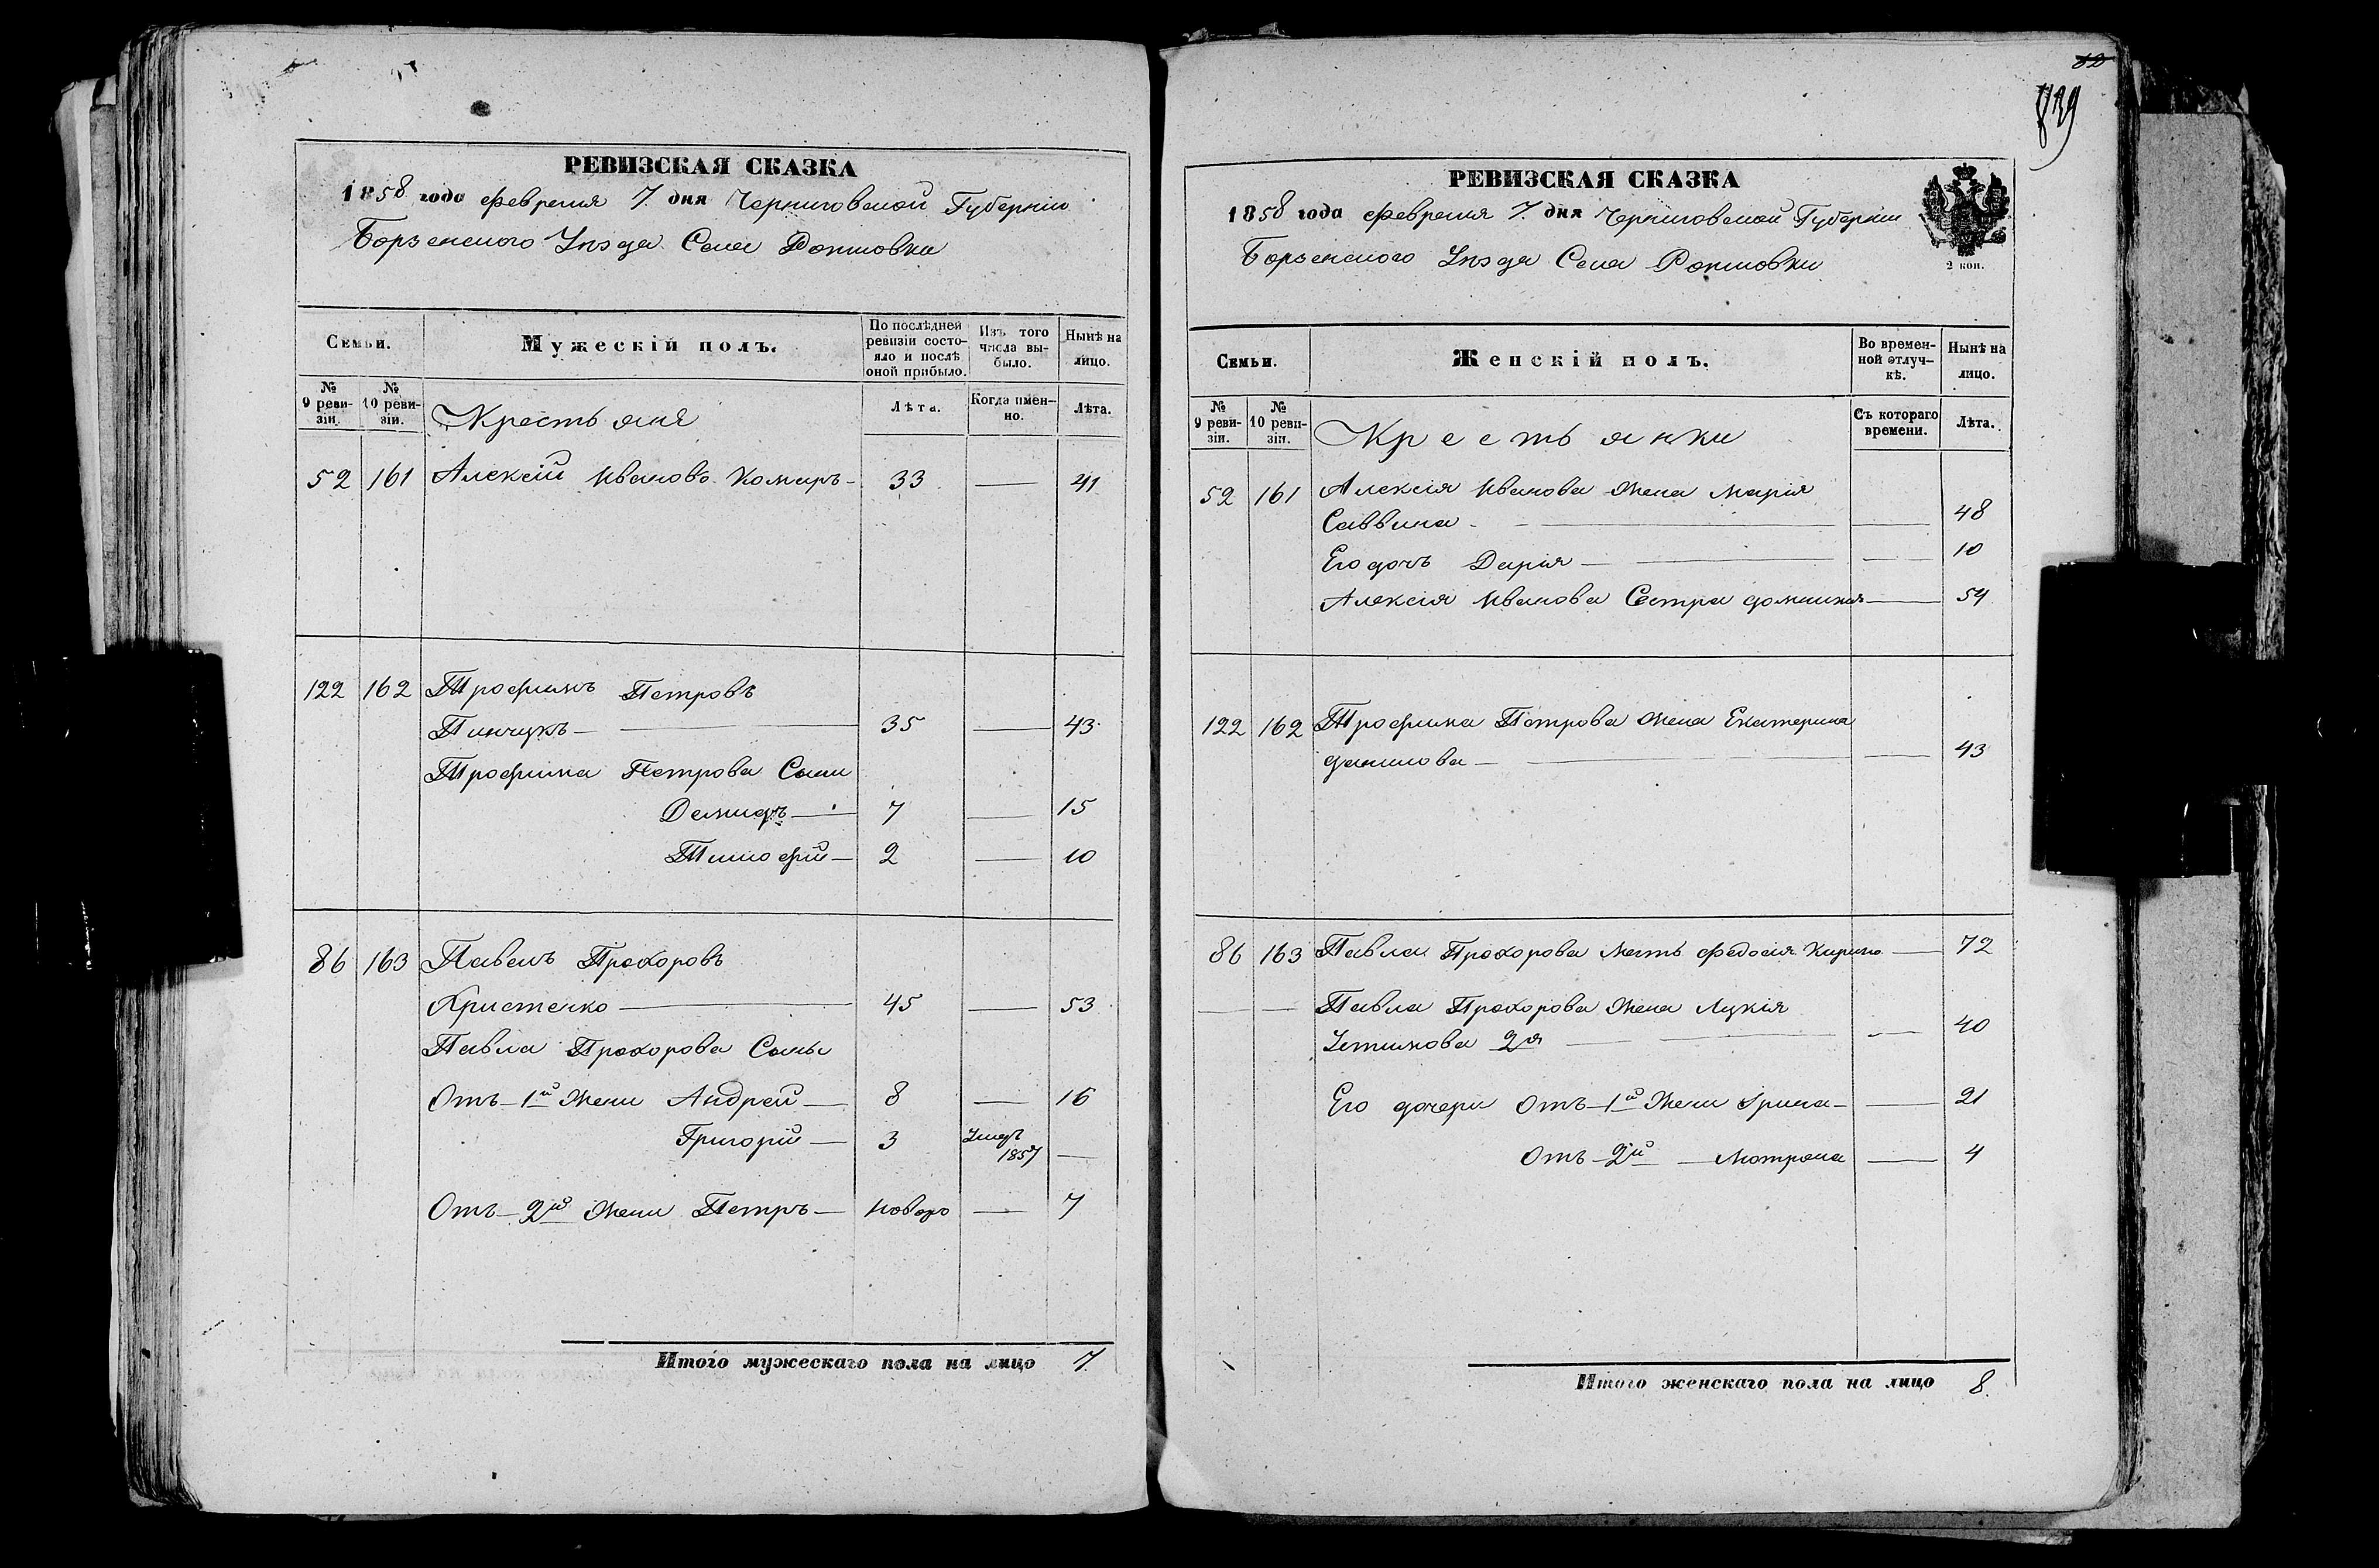 РЕВИЗСКАЯ СКАЗКА
1858 года февраля 7 дня Черниговской Губерніи
Борзенского Уѣзда Села
Семьи.
Мужескій полъ.
По послѣдней ревизіи состояло и послѣ оной прибыло.
Изъ того числа выбыло.
Нынѣ на лицо.
№ 9 ревизіи.
№ 10 ревизіи.
Крестьяня
Лѣта.
Когда именно.
Лѣта.
52 161 Алексѣй Ивановъ Комаръ 33 — 41
122 162 Трофимъ Петровъ
Пинчукъ — 35 — 43
Трофима Петрова Сыни
Демидъ — 7 — 15
Тимофѣй — 2 — 10
86 163 Павелъ Прохоровъ
Христенко — 45 — 53
Павла Прохорова Сыны
Отъ 1й Жени Андрей — 8 — 16
Григорій — 3 Умеръ 1857 —
Отъ 2й Жени Петръ — новоро — 7
Итого мужескаго пола на лицо 7
82
РЕВИЗСКАЯ СКАЗКА
1858 года февраля 7 дня Черниговской Губерніи
Борзенского Уѣзда Села
2 коп.
Семьи.
Женскій полъ.
Во временной отлучкѣ.
Нынѣ на лицо.
№ 9 ревизіи.
№ 10 ревизіи.
Крестьянки
Съ котораго времени.
Лѣта.
52 161 Алексія Иванова Жена Марія
Саввина — — 48
Его дочь Дарія — — 10
Алексія Иванова Сестра — 54
122 162 Трофима Петрова Жена Екатерина
Данилова — — 43
86 163 Павла Прохорова Мать Федосія — 72
Павла Прохорова Жена Лукія
Устимова 2я — — 40
Его дочери Отъ 1й Жени — 21
Отъ 2й — Мотрона — 4
Итого женскаго пола на лицо 8.